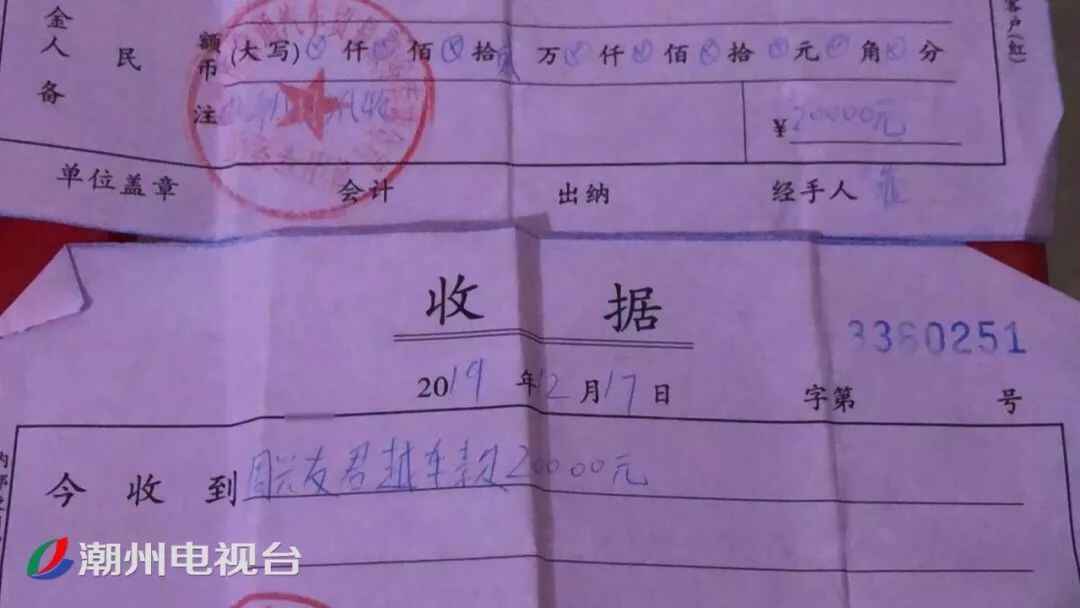 客户(红)
金额(大写)⊗仟⊗佰⊗拾贰万⊗仟⊗佰⊗拾⊗元⊗角⊗分
人民币
备注
¥20000元
单位盖章 会计 出纳 经手人
收据
3360251
2019年12月17日 字第 号
今收到周兴友君越车款20000元
潮州电视台